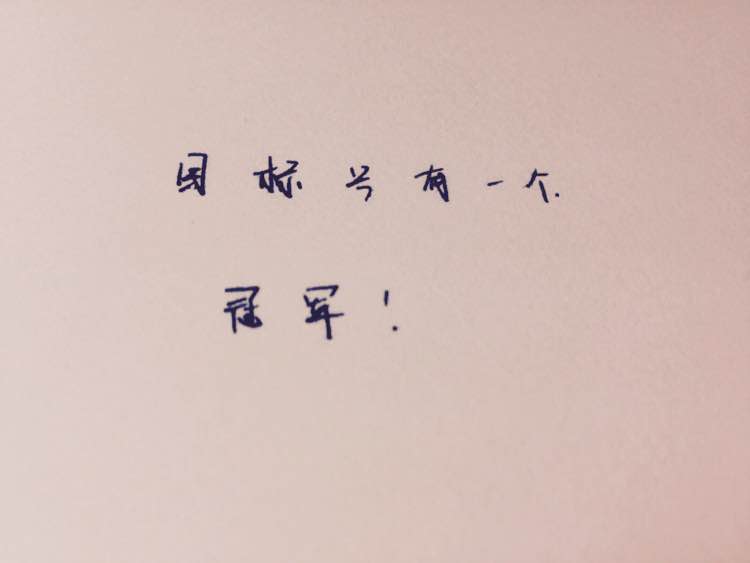 目标只有一个.
冠军!